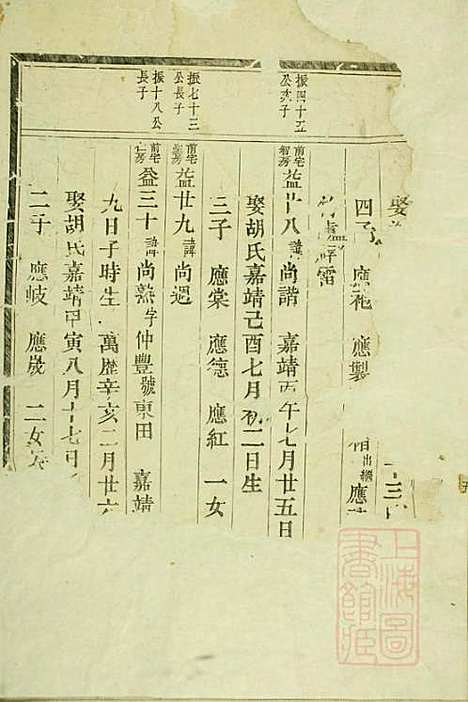 娶
四子 應袍 應製 出繼 應
振四十五公次子
前宅智房 益廿八 諱尚諧 嘉靖丙午七月廿五日
娶胡氏嘉靖己酉七月初二日生
三子 應棠 應德 應紅 一女
振七十三公長子
前宅 益廿九 諱尚遇
振十八公長子
前宅仁房 益三十 諱尚熟字仲豐號東田 嘉靖
九日子時生 萬歷辛亥二月廿六
娶胡氏嘉靖甲寅八月十七日
二子 應岐 應嵗 二女
上海圖書館藏